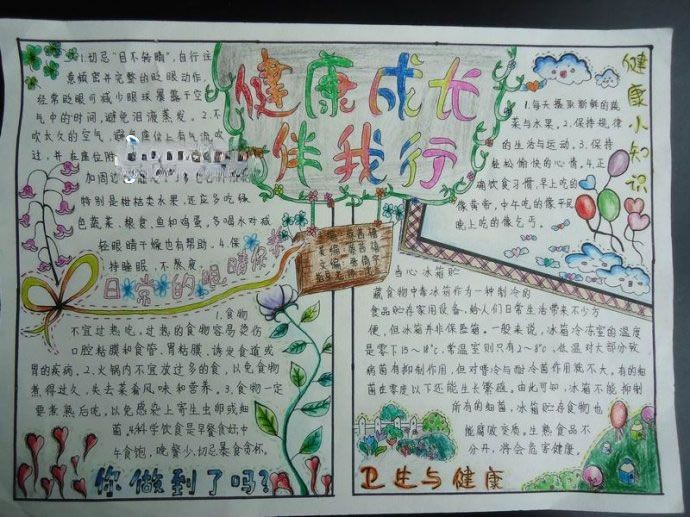 健康成长
伴我行
1.切忌"目不转睛",自行注
意频密并完整的眨眼动作,
经常眨眼可减少眼球暴露于空
气中的时间,避免泪液蒸发。2.不
吹太久的空气,避 座位上有气流吹
过,并在座位附
加周边
特别是柑桔类水果,还应多吃绿
色蔬菜、粮食、鱼和鸡蛋。多喝水对减
轻眼睛干燥也有帮助。4.保
持睡眠,不熬夜。
日常的眼睛保养
1.食物
不宜过热吃,过热的食物容易烫伤
口腔粘膜和食管、胃粘膜,诱发食道或
胃的疾病。2.火锅内不宜放过多的食,以免食物
煮得过久,失去菜肴风味和营养。3.食物一定
要煮熟后吃,以免感染上寄生虫卵或细
菌。4.科学饮食是早餐食好中
午食饱,晚餐少,切忌暴食贪杯。
你做到了吗?
健康小知识
1.每天摄取新鲜的蔬
菜与水果。2.保持规律
的生活与运动。3.保持
轻松愉快的心情。4.正
确饮食习惯,早上吃的
像皇帝,中午吃的像平民
晚上吃的像乞丐。
当心冰箱贮
藏食物中毒冰箱作为一种制冷的
食品贮存家用设备,给人们日常生活带来不少方
便,但冰箱并非保险箱。一般来说,冰箱冷冻室的温度
是零下15~18℃,常温室则只有2~8℃,低温对大部分致
病菌有抑制作用,但对嗜冷与耐冷菌作用就不大,有的细
菌在零度以下还能生长繁殖。由此可知,冰箱不能抑制
所有的细菌,冰箱贮存食物也
能腐败变质。生熟食品不
分开,将会危害健康。
卫生与健康